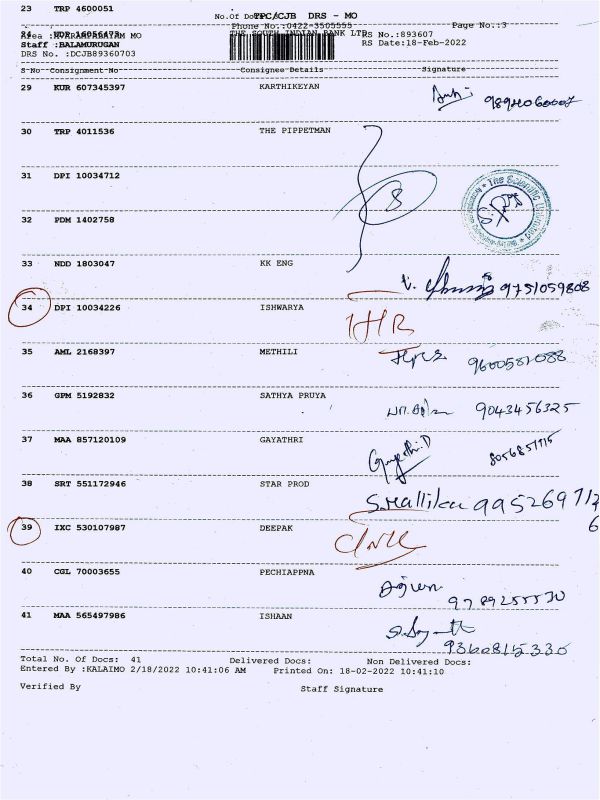 23 TRP 4600051
No.Of Docs TPC/CJB DRS - MO
24 NDR 16056473 THE SOUTH INDIAN BANK LTD
Phone No.:0422-3505555 Page No.:3
MO RS No.:893607
Staff :BALAMURUGAN RS Date:18-Feb-2022
DRS No. :DCJB89360703
S No Consignment No Consignee Details Signature
29 KUR 607345397 KARTHIKEYAN
30 TRP 4011536 THE PIPPETMAN
31 DPI 10034712
32 PDM 1402758
33 NDD 1803047 KK ENG
9751059808
34 DPI 10034226 ISHWARYA
35 AML 2168397 METHILI
9600581088
36 GPM 5192832 SATHYA PRUYA
9043456325
37 MAA 857120109 GAYATHRI
Gayathri.D
38 SRT 551172946 STAR PROD
S.Mallika 995269717
6
39 IXC 530107987 DEEPAK
40 CGL 70003655 PECHIAPPNA
9789255570
41 MAA 565497986 ISHAAN
9360815330
Total No. Of Docs: 41 Delivered Docs: Non Delivered Docs:
Entered By :KALAIMO 2/18/2022 10:41:06 AM Printed On: 18-02-2022 10:41:10
Verified By Staff Signature